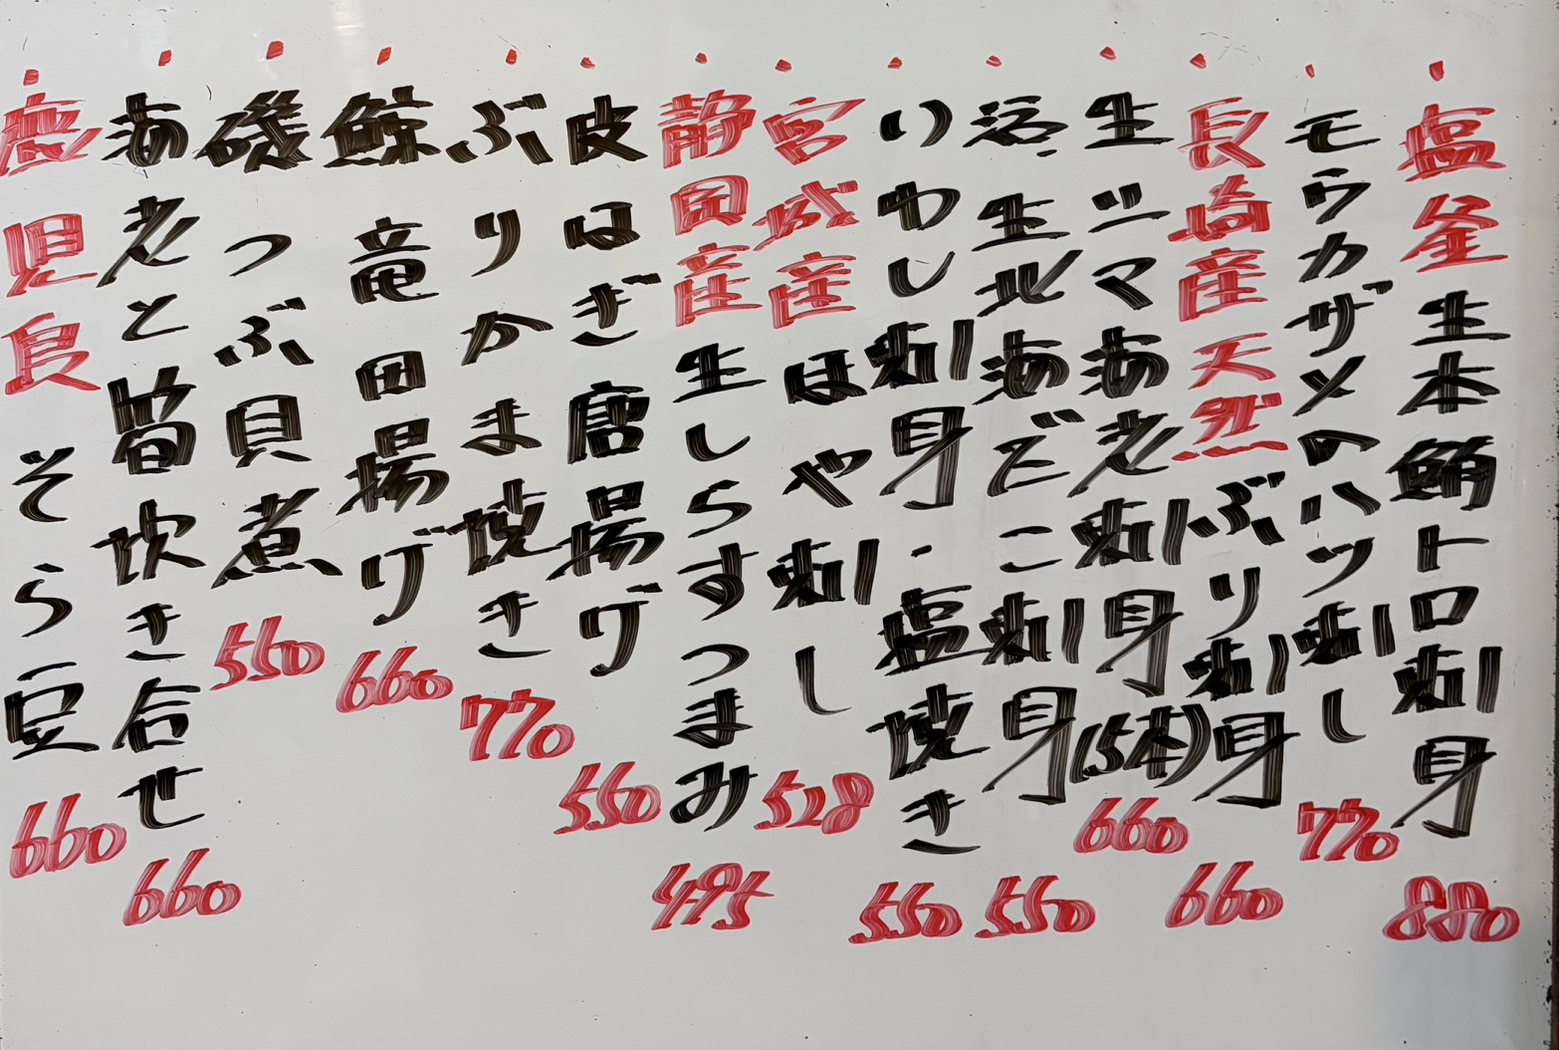 塩釜生本鮪トロ刺身 880
モウカザメのハツ刺し 770
長崎産天然ぶり刺身 660
生シマあ海老刺身(5本) 660
活生北海だこ刺身 550
いわし刺身・塩焼き 550
宮城産ほや刺し 528
静岡産生しらすつまみ 495
皮はぎ唐揚げ 550
ぶりかま焼き 770
鯨竜田揚げ 660
磯つぶ貝煮 550
海老と筍炊き合せ 660
鹿児島そら豆 660